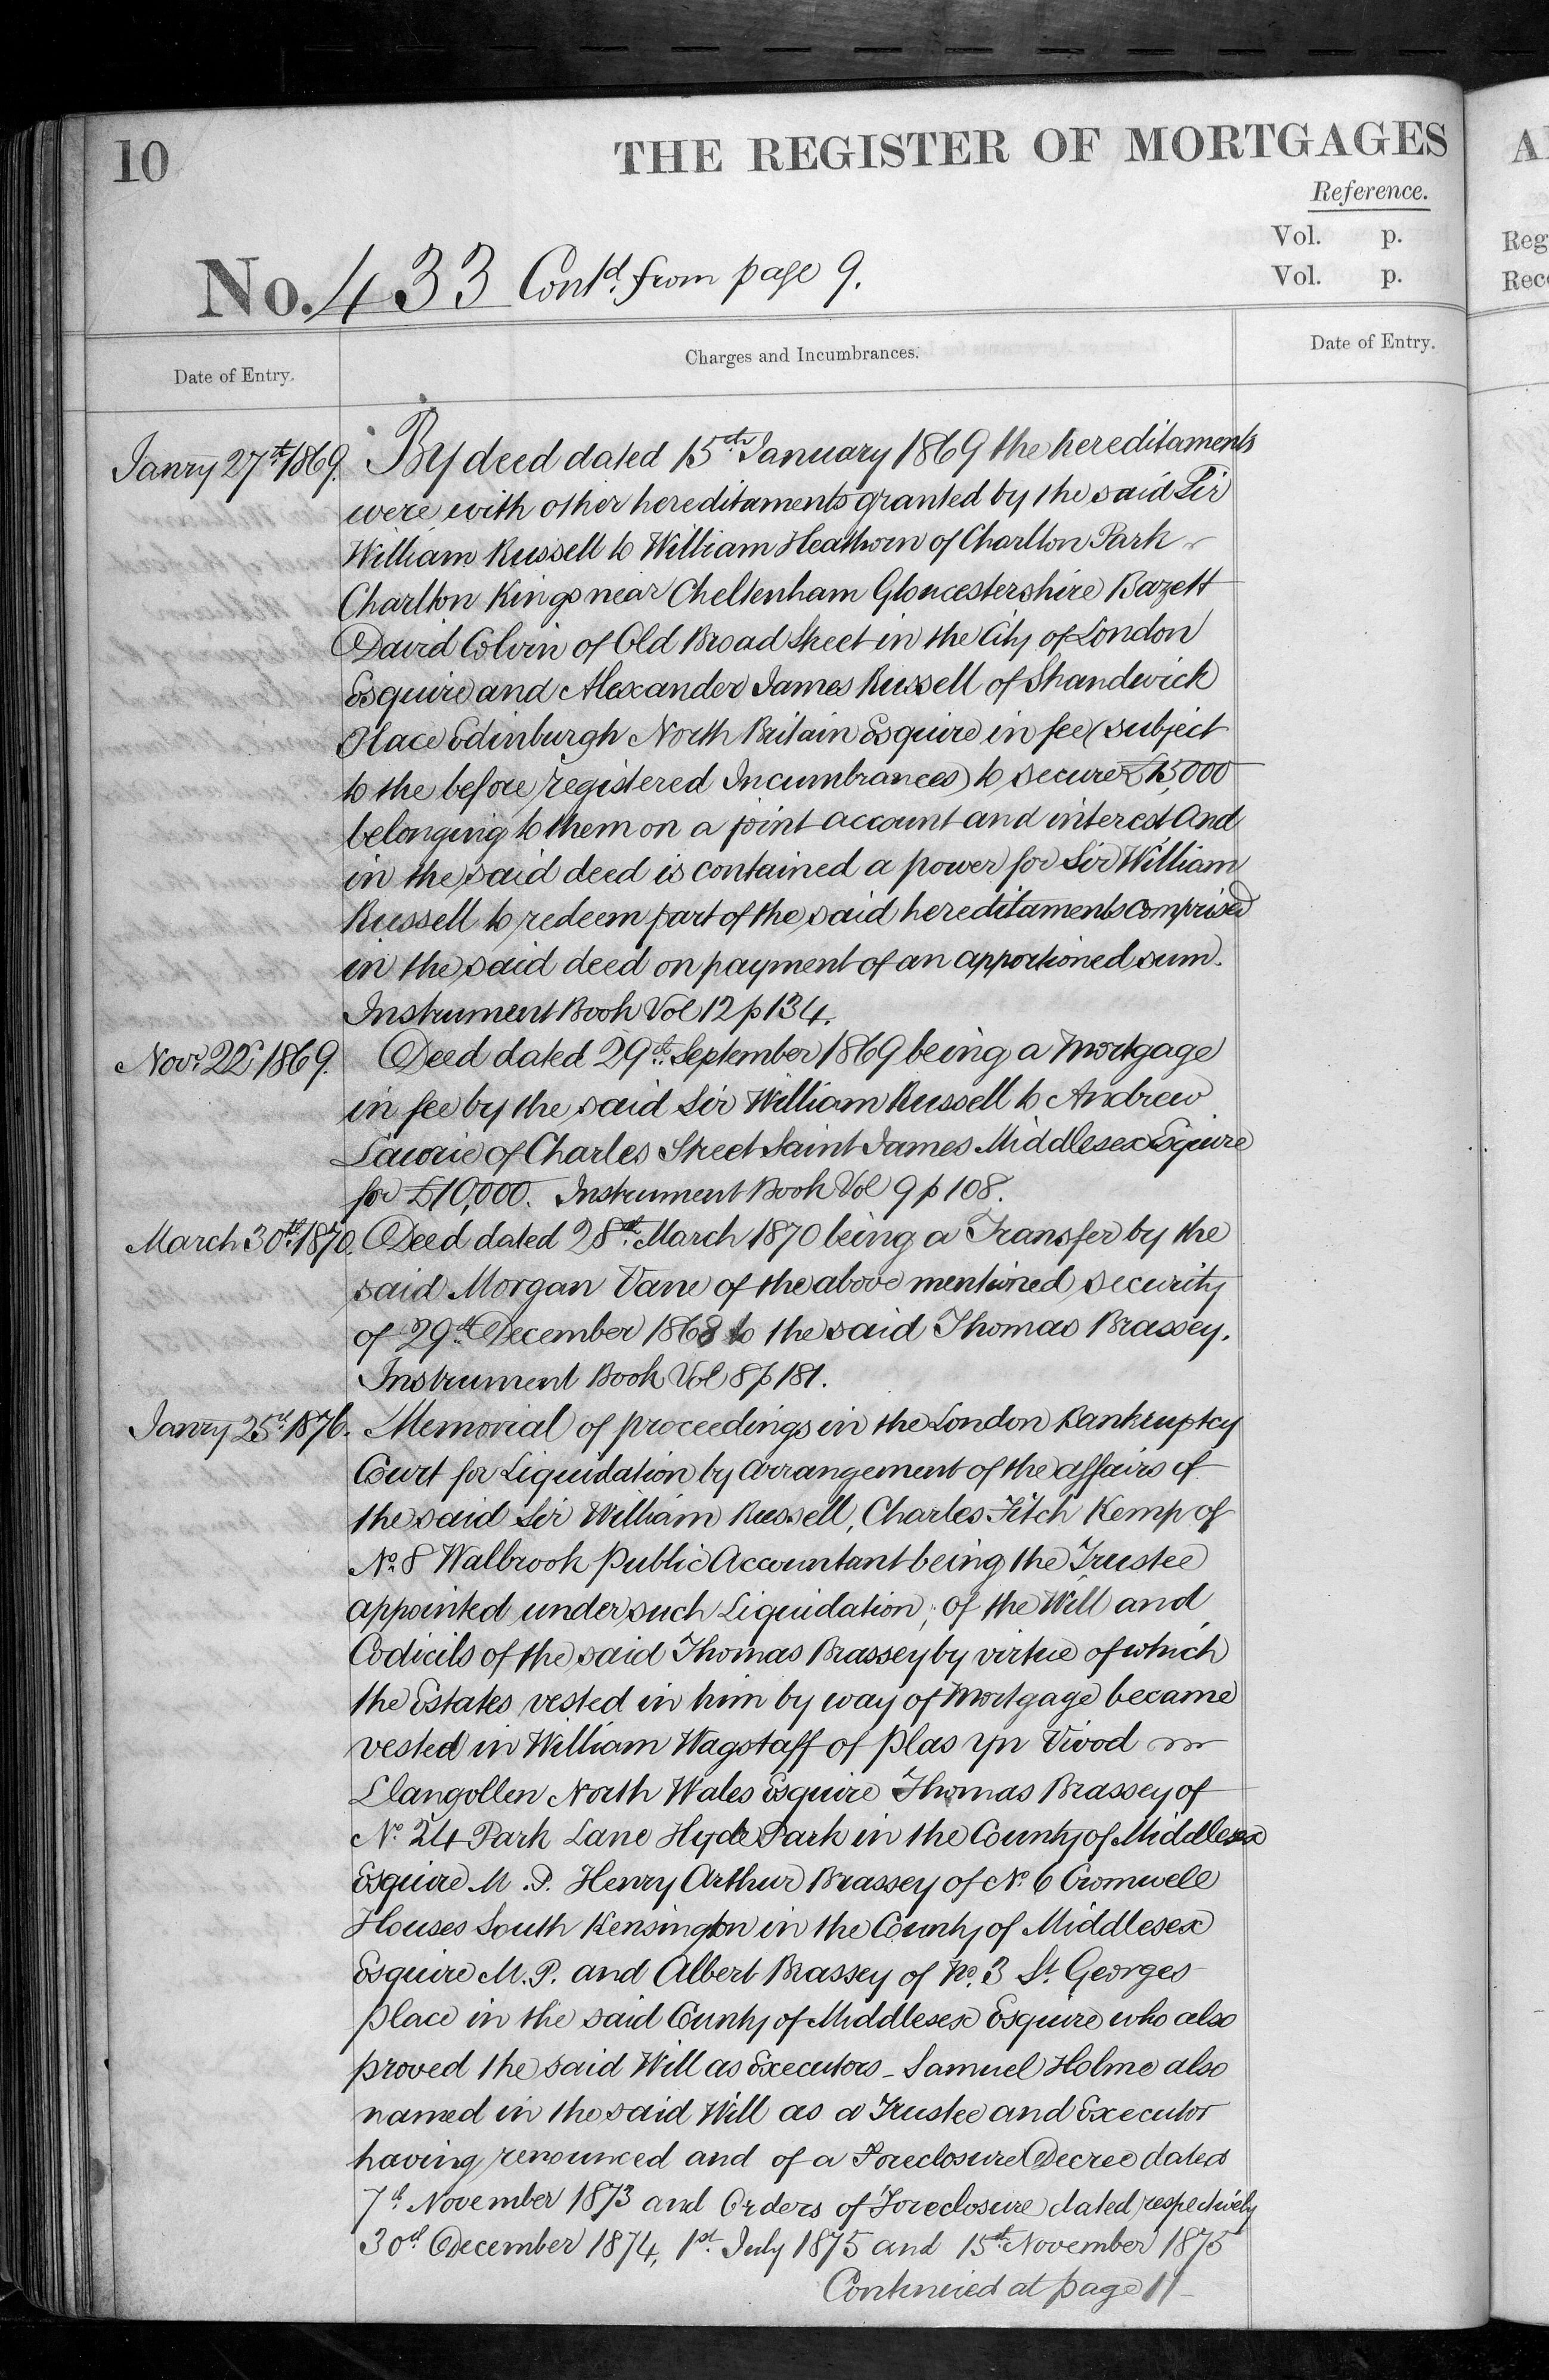 10
THE REGISTER OF MORTGAGES
Reference.
Vol. p.
Vol. p.
No. 433 Contd. from page 9.
Date of Entry.
Charges and Incumbrances.
Date of Entry.
Janry 27th 1869. By deed dated 15th January 1869 the hereditaments
were with other hereditaments granted by the said Sir
William Russell to William Heathorn of Charlton Park
Charlton Kings near Cheltenham Gloucestershire Bazett
David Colvin of Old Broad Street in the City of London
Esquire and Alexander James Russell of Shandwick
Place Edinburgh North Britain Esquire in fee (subject
to the before registered Incumbrances) to secure £15,000
belonging to them on a joint account and interest And
in the said deed is contained a power for Sir William
Russell to redeem part of the said hereditaments comprised
in the said deed on payment of an apportioned sum.
Instrument Book Vol 12 p 134.
Novr. 22d 1869. Deed dated 29th September 1869 being a Mortgage
in fee by the said Sir William Russell to Andrew
Lawrie of Charles Street Saint James Middlesex Esquire
for £10,000. Instrument Book Vol 9 p 108.
March 30th 1870. Deed dated 28th March 1870 being a Transfer by the
said Morgan Vane of the above mentioned security
of 29th December 1868 to the said Thomas Brassey.
Instrument Book Vol 8 p 181.
Janry 25th 1876. Memorial of proceedings in the London Bankruptcy
Court for Liquidation by arrangement of the affairs of
the said Sir William Russell, Charles Fitch Kemp of
No. 8 Walbrook Public Accountant being the Trustee
appointed under such Liquidation; of the Will and
Codicils of the said Thomas Brassey by virtue of which
the Estates vested in him by way of Mortgage became
vested in William Wagstaff of Plas yn Vivod
Llangollen North Wales Esquire Thomas Brassey of
No. 24 Park Lane Hyde Park in the County of Middlesex
Esquire M.P. Henry Arthur Brassey of No. 6 Cromwell
Houses South Kensington in the County of Middlesex
Esquire M.P. and Albert Brassey of No. 3 St. Georges
place in the said County of Middlesex Esquire who also
proved the said Will as Executors - Samuel Holme also
named in the said Will as a Trustee and Executor
having renounced and of a Foreclosure Decree dated
7th November 1873 and Orders of Foreclosure dated respectively
30th December 1874, 1st July 1875 and 15th November 1875
Continued at page 11
A
Reg
Rec